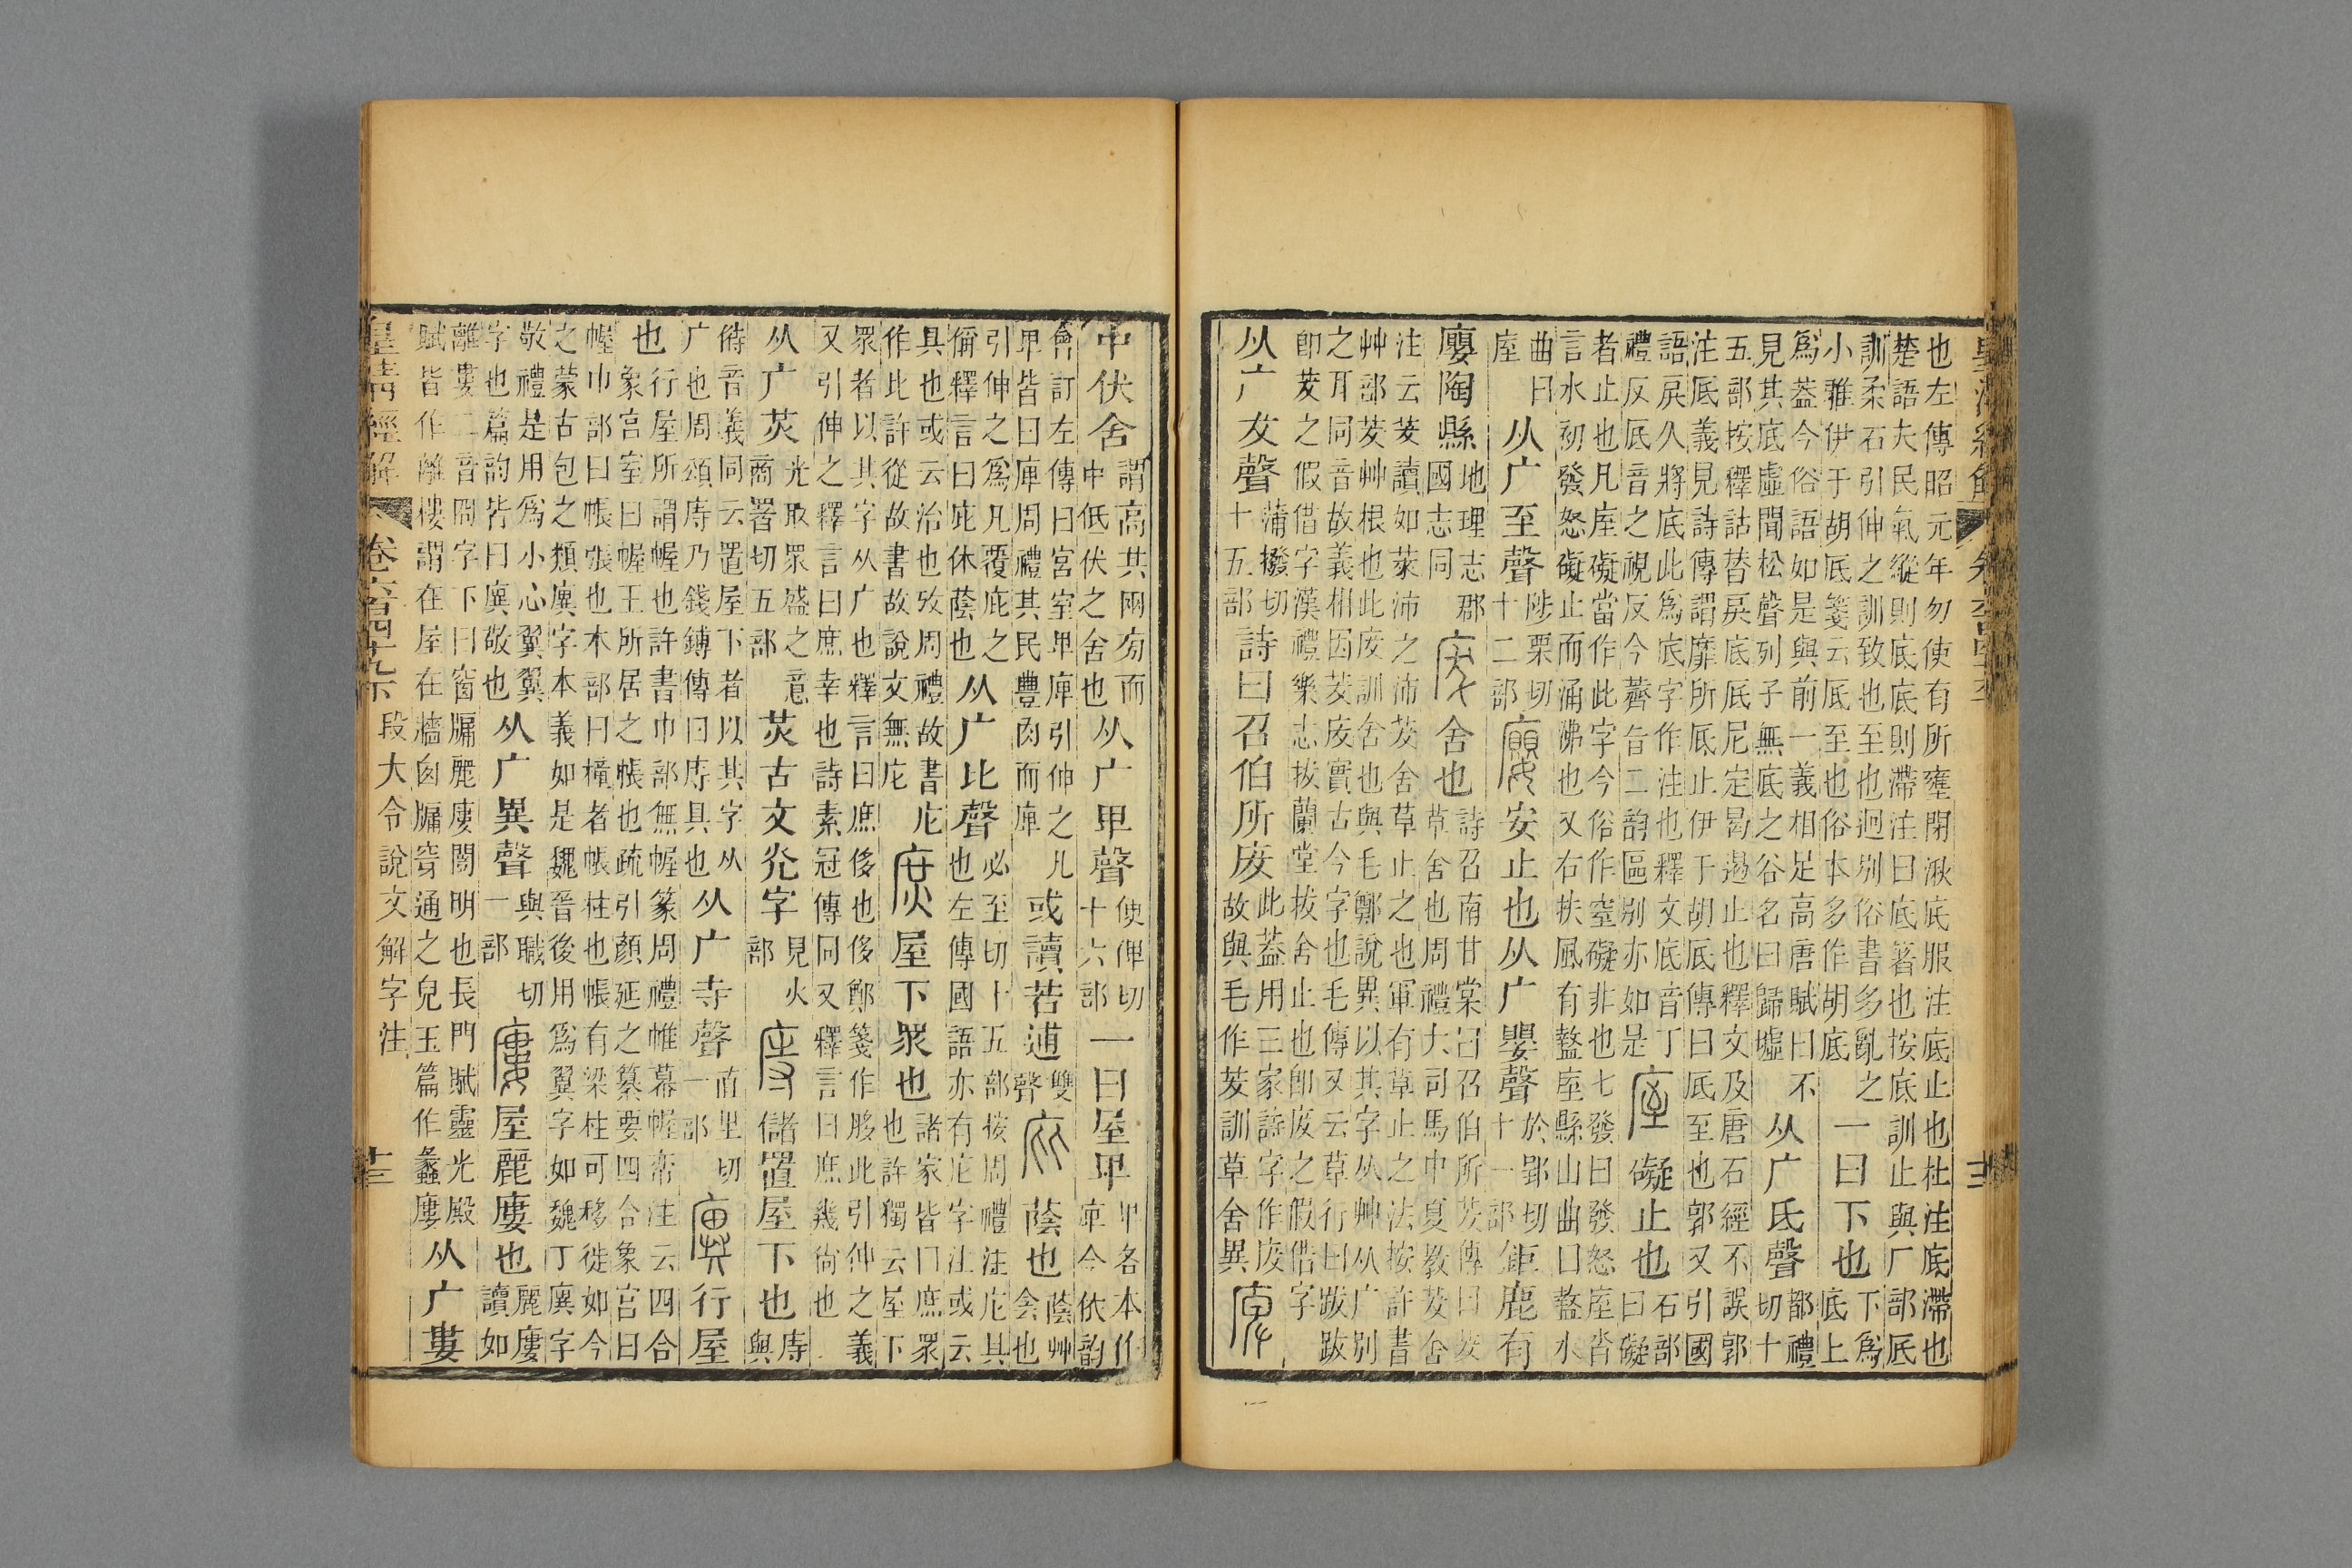 皇清經解
也左傳昭元年勿使有所壅閉湫底服注底止也杜注底滯也
楚語夫民氣縱則底底則滯注曰底著也按底訓止與厂部厎
訓柔石引伸之訓致也至也迥別俗書多亂之
小雅伊于胡厎箋云厎至也俗本多作胡底
一曰下也
下爲
底上
爲蓋今俗語如是與前一義相足高唐賦曰不
見其底虛聞松聲列子無底之谷名曰歸墟
从广氐聲
都禮
切十
五部按釋詁替戾底厎尼定曷遏止也釋文及唐石經不誤郭
注厎義見詩傳謂靡所厎止伊于胡厎傳曰厎至也郭又引國
語戾久將底此爲底字作注也釋文底音丁
禮反厎音之視反今薺旨二韵區別亦如是
庢礙止也
石部
曰礙
者止也凡庢礙當作此字今俗作窒礙非也七發曰發怒庢沓
言水初發怒礙止而涌沸也又右扶風有盩庢縣山曲曰盩水
曲曰
庢
从广至聲
陟栗切
十二部
廮安止也从广嬰聲
於郢切
十一部
鉅鹿有
廮陶縣
地理志郡
國志同
废舍也
詩召南甘棠召伯所茇傳曰茇
草舍也周禮大司馬中夏教茇舍
注云茇讀如萊沛之沛茇舍草止之也軍有草止之法按許書
艸部茇艸根也此废訓舍也與毛鄭說異以其字从艸从广別
之耳同音故義相因茇废實古今字也毛傳又云草行曰跋跋
卽茇之假借字漢禮樂志拔蘭堂拔舍止也卽废之假借字
从广犮聲
蒲撥切
十五部
詩曰召伯所废
此蓋用三家詩字作废
故與毛作茇訓草舍異
庳
中伏舍
謂高其兩旁而
中低伏之舍也
从广卑聲
便俾切
十六部
一曰屋卑
卑各本作
庳今依韵
會訂左傳曰宮室卑庳引伸之凡
卑皆曰庳周禮其民豐肉而庳
或讀若逋
雙
聲
庇蔭也
蔭艸
侌也
引伸之爲凡覆庇之
偁釋言曰庇休蔭也
从广比聲
必至切十五部按周禮注庀具
也左傳國語亦有庀字注或云
具也或云治也攷周禮故書庀
作比許從故書故說文無庀
庶屋下衆也
諸家皆曰庶衆
也許獨云屋下
衆者以其字从广也釋言曰庶侈也侈鄭箋作胗此引伸之義
又引伸之釋言曰庶幸也詩素冠傳同又釋言曰庶幾尚也
从广炗
光取衆盛之意
商署切五部
炗古文光字
見火
部
庤儲置屋下也
庤
與
偫音義同云置屋下者以其字从
广也周頌庤乃錢鎛傳曰庤具也
从广寺聲
直里切
一部
廙行屋
也
行屋所謂幄也許書巾部無幄篆周禮帷幕幄帟注云四合
象宮室曰幄王所居之帳也疏引顏延之纂要四合象宮曰
幄巾部曰帳張也木部曰橦者帳柱也帳有梁柱可移徙如今
之蒙古包之類廙字本義如是魏晉後用爲翼字如魏丁廙字
敬禮是用爲小心翼翼
字也篇韵皆曰廙敬也
从广異聲
與職切
一部
廔屋麗廔也
麗廔
讀如
離婁二音囧字下曰窗牖麗廔闓明也長門賦靈光殿
賦皆作離樓謂在屋在牆囪牖穹通之皃玉篇作廔
从广婁
皇清經解 卷六百四十九下 段大令說文解字注 十三